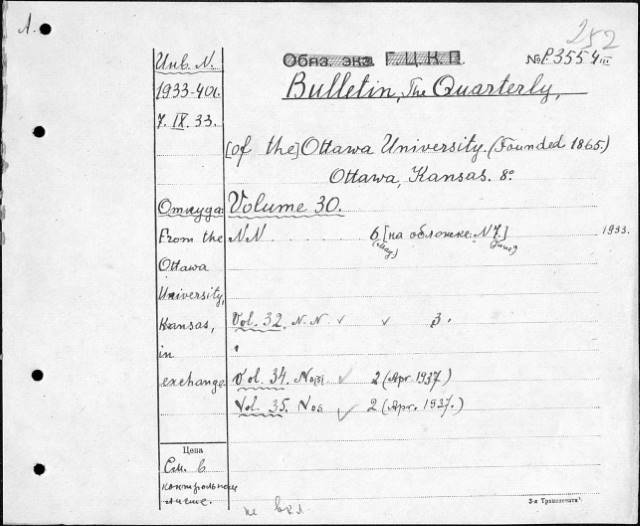 А.
252
Инв. N.
Обяз. экз. Г.Ц.К.П.
№ P.3554 III
1933-401.
Bulletin, The Quarterly,
7. IX. 33.
[of the] Ottawa University. (Founded 1865.)
Ottawa, Kansas. 8º
Откуда: Volume 30.
From the NN . . . . . 6 [на обложке N 7.] 1933.
(May) (June)
Ottawa
University,
Kansas, Vol. 32. N.N. ✓ ✓ 3.
in
exchange. Vol. 34. ✓ 2 (Apr. 1937)
Vol. 35. ✓ 2 (Apr. 1937.)
Цена
См. в
контрольном
листе.
не вкл
3-я Транспечать